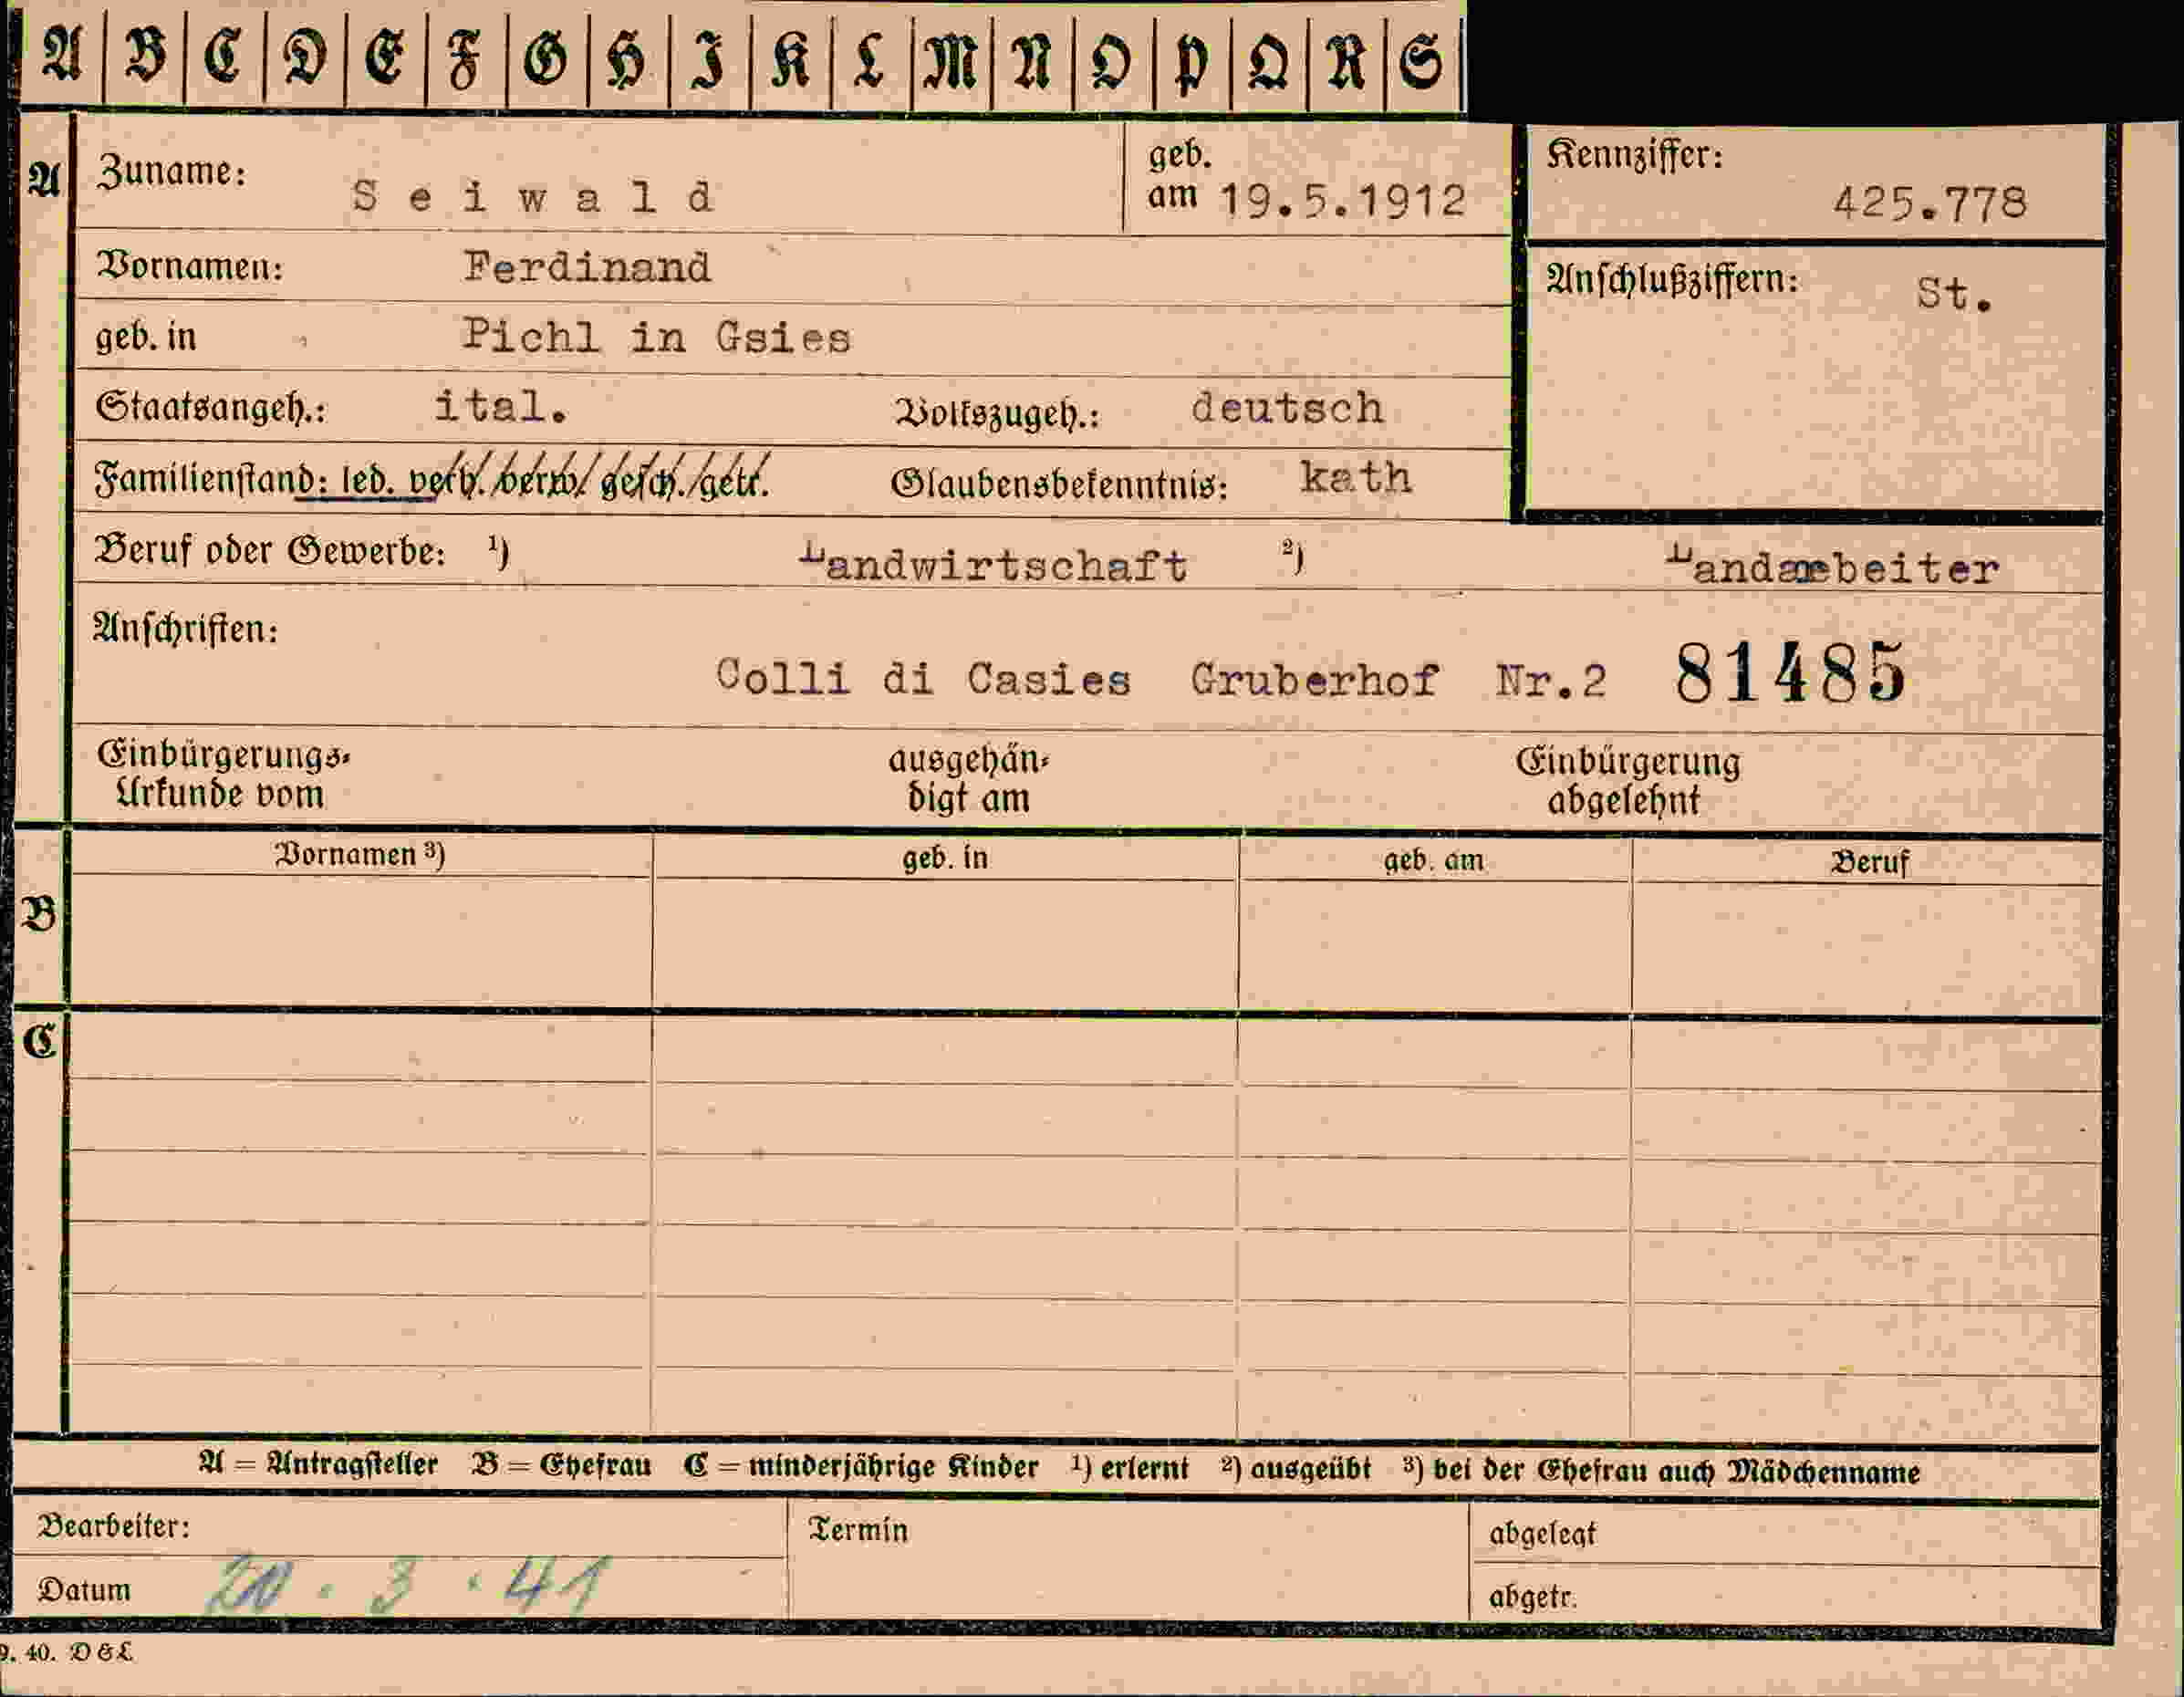 A B C D E F G H I K L M N O P Q R S
A Zuname: Seiwald geb. am 19.5.1912 Kennziffer: 425.778
Vornamen: Ferdinand Anschlußziffern: St.
geb. in Pichl in Gsies
Staatsangeh.: ital. Volkszugeh.: deutsch
Familienstand: led. verh./verw./gesch./getr. Glaubensbekenntnis: kath
Beruf oder Gewerbe: 1) Landwirtschaft 2) Landarbeiter
Anschriften:
Colli di Casies Gruberhof Nr.2 81485
Einbürgerungs- ausgehän- Einbürgerung
Urkunde vom digt am abgelehnt
Vornamen 3) geb. in geb. am Beruf
B
C
A = Antragsteller B = Ehefrau C = minderjährige Kinder 1) erlernt 2) ausgeübt 3) bei der Ehefrau auch Mädchenname
Bearbeiter: Termin abgelegt
Datum 20.3.41 abgetr.
9. 40. D&L